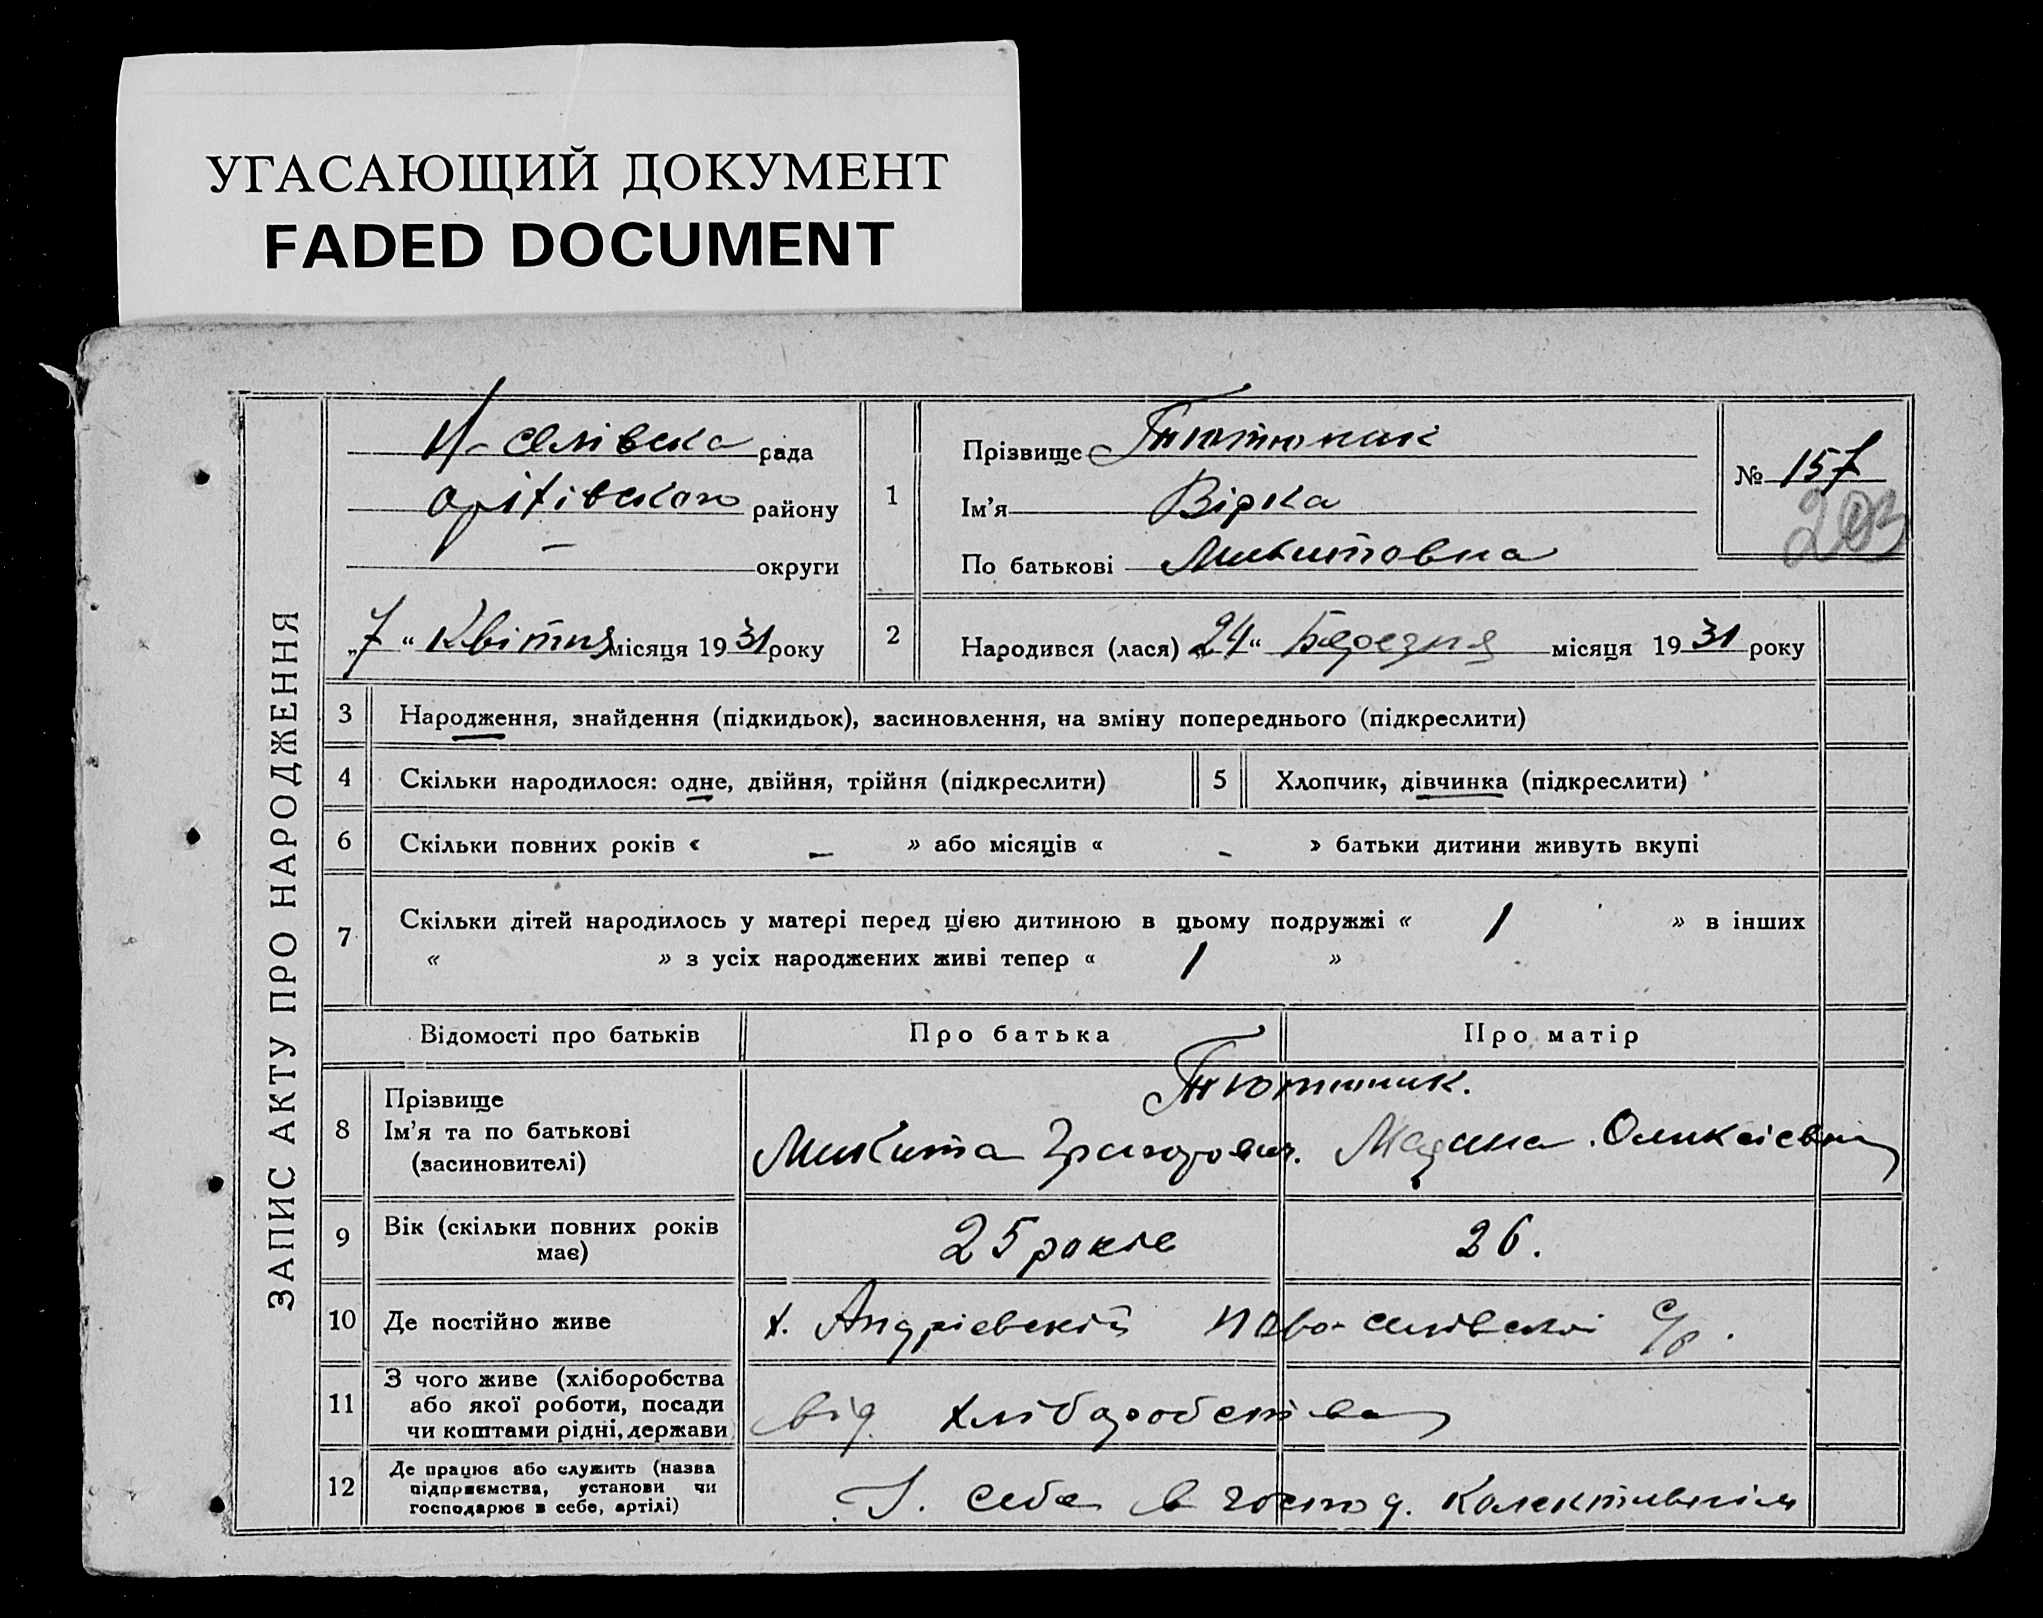 УГАСАЮЩИЙ ДОКУМЕНТ
FADED DOCUMENT
ЗАПИС АКТУ ПРО НАРОДЖЕННЯ
Н-селівська рада
району
— округи
„7“ Квітня місяця 1931 року
1 Прізвище Тютюник
Ім'я Вірка
По батькові Микитовна
№ 157
203
2 Народився (лася) „24“ Березня місяця 1931 року
3 Народження, знайдення (підкидьок), засиновлення, на зміну попереднього (підкреслити)
4 Скільки народилося: одне, двійня, трійня (підкреслити) 5 Хлопчик, дівчинка (підкреслити)
6 Скільки повних років « — » або місяців « - » батьки дитини живуть вкупі
7 Скільки дітей народилось у матері перед цією дитиною в цьому подружжі « 1 » в інших
« » з усіх народжених живі тепер « 1 »
Відомості про батьків Про батька Про матір
8 Прізвище
Ім'я та по батькові
(засиновителі)
Тютюник.
Микита Григорович. Оликсіевна
9 Вік (скільки повних років
має)
25 років 26.
10 Де постійно живе х. Андрієвский Ново-силівської с/р.
11 З чого живе (хліборобства
або якої роботи, посади
чи коштами рідні, держави
від хліборобства
12 Де працює або служить (назва
підприємства, установи чи
господарює в себе, артілі)
У себе в господ. Колективнім